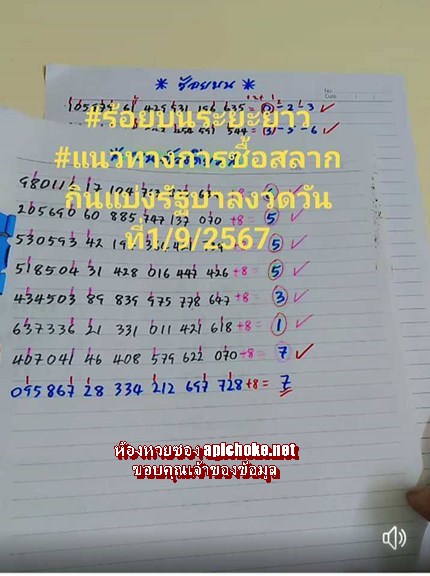 * ร้อยบน *
No.
Date
105979 61 429 931 196 635
2 - 3 ✓
544 = (3) - 5 - 6 ✓
#ร้อยบนระยะยาว
#แนวทางการซื้อสลาก
กินแบ่งรัฐบาลงวดวัน
ที่1/9/2567
98011
205690 60 885 747 137 070 +8 = 5 ✓
530593 42
5 ✓
518504 31 428 016 447 426 +8 = 5 ✓
434503 89 839 975 778 647 +8 = 3 ✓
637336 21 331 011 421 618 +8 = 1 ✓
407041 46 408 579 622 070 +8 = 7 ✓
095867 28 334 212 697 728 +8 = 7
ห้องหวยซอง apichoke.net
ขอบคุณเจ้าของข้อมูล